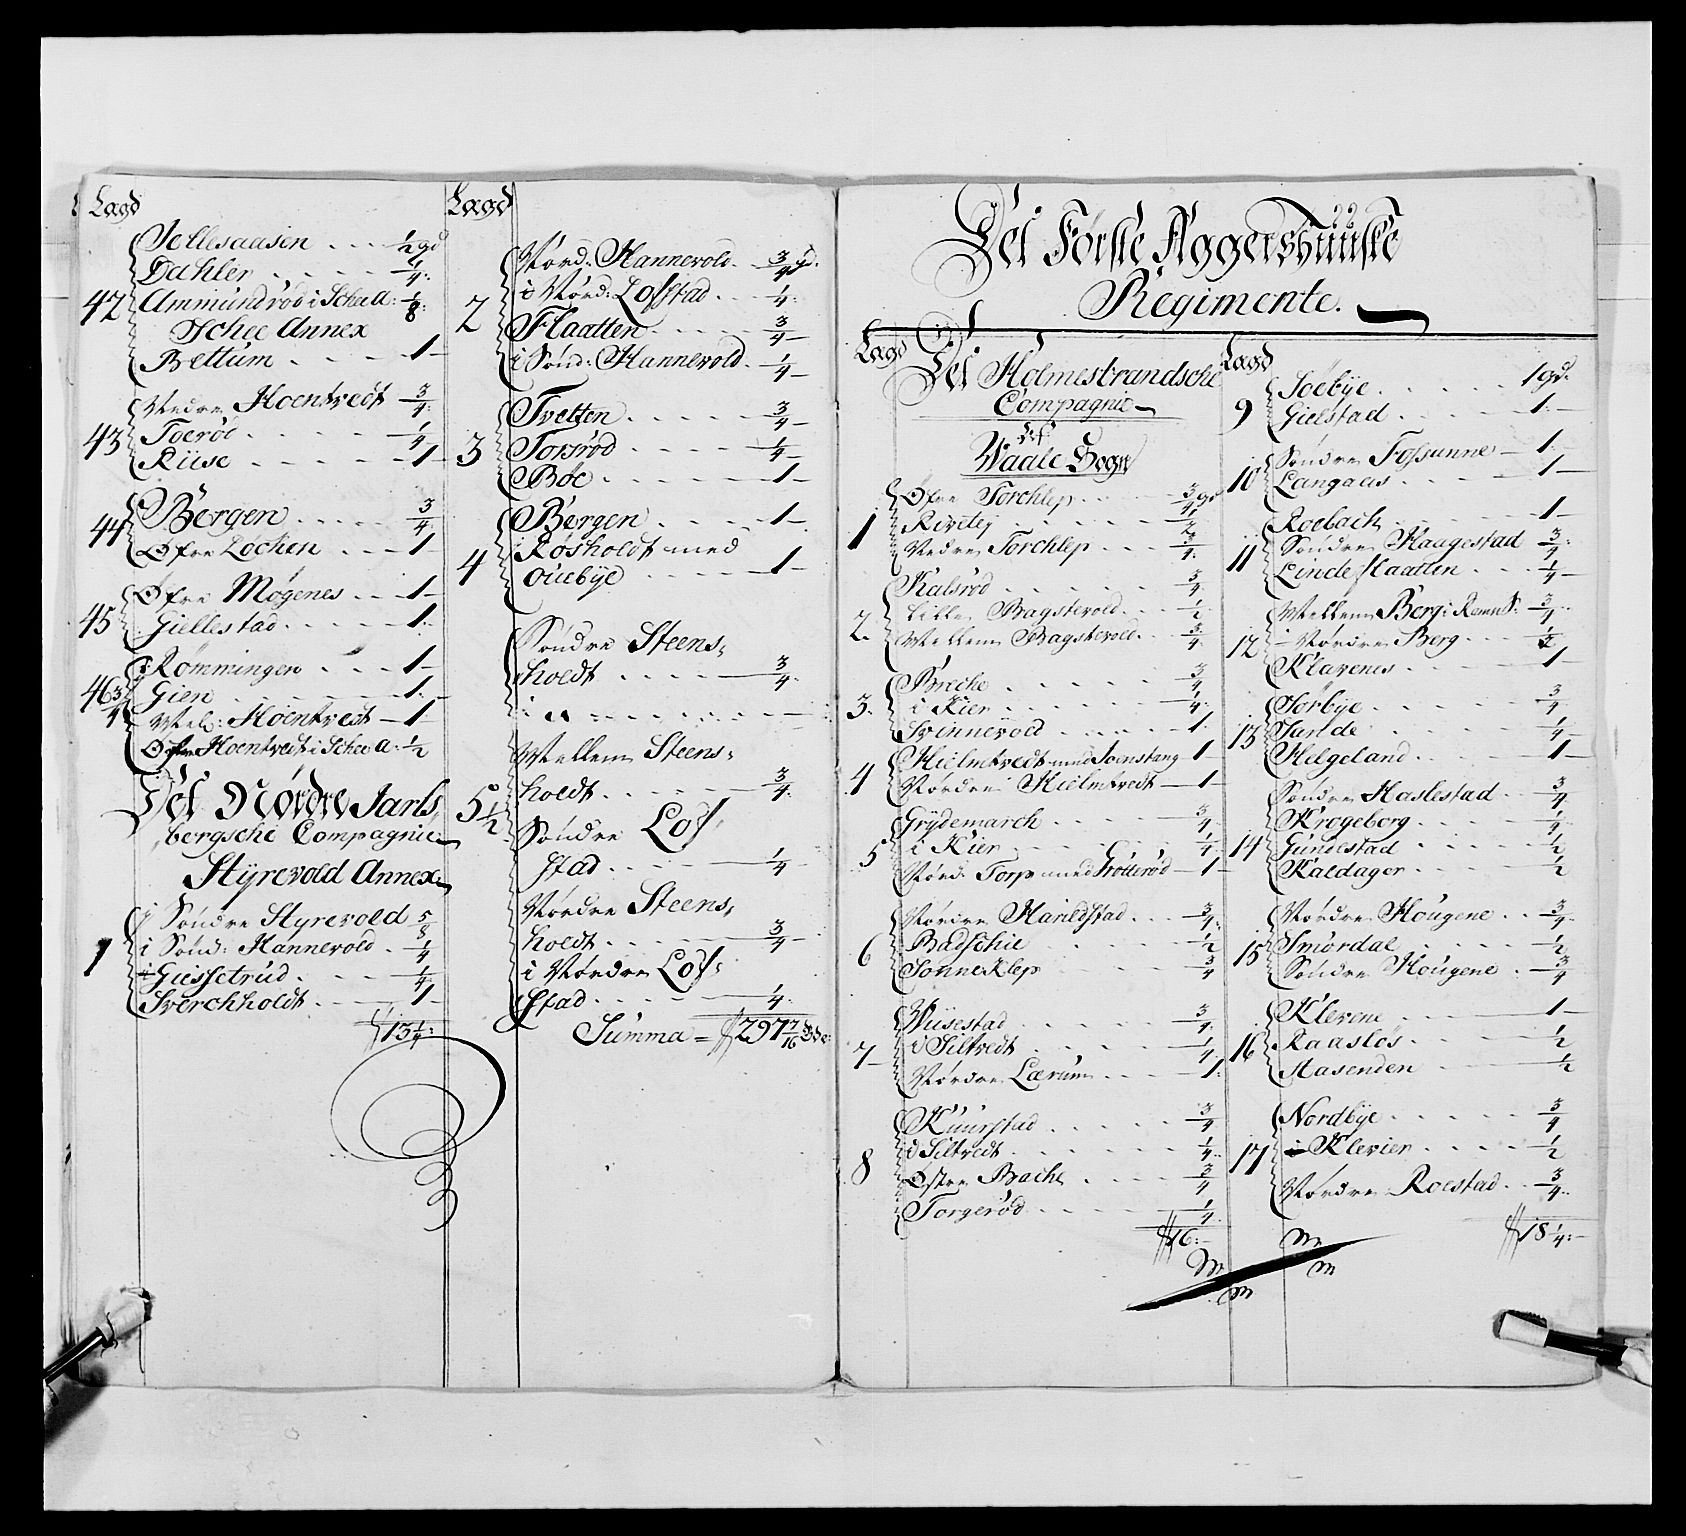 Lagd
Jellesaasen . . . ½ gd
Dahler . . . . . ¼:
42 Ammundrød i Schee A: ⅛:
Schee Annex
Bettum . . . . 1 –
Nedre Hoentvedt ¾:
43 Toerød . . . . . ¼
Riise . . . . . 1 –
Bergen . . . . ¾
44 Øfre Løchen . . . 1
Øfre Møgenes . . 1 –
45 Giellestad . . . . 1.
Rømningen . . . 1 –
46¾ Gien . . . . . 1.
Mel: Hoentvedt – 1
Øfre Hoentvedt i Schee A: ½
Det Nørdre Jarls,
bergsche Compagnie
Styrevold Annex
i Søndre Styrevold ⅝
1 i Sønd: Hannevold . ¼
i Giessetrud . . . . ¼
Sverchholdt . . . 1
13¼:
Lagd
Nørd: Hannevold . ¾ g.
i Nørd: Lofstad . . ¼:
2 Flaatten . . . . ¾ –
i Sønd: Hannevold . ¼ –
Tvetten . . . . ¾ –
3 Torsrød . . . . ¼ –
Bøe . . . . . . 1 –
Bergen . . . . 1 –
Røsholdt med
4 Ouebye . . . . 1 –
Søndre Steens,
holdt . . . . . ¾:
Mellem Steens,
holdt . . . . . ¾:
5½ Søndre Lof,
stad . . . . . ¼
Nørdre Steens,
holdt . . . . . ¾ –
i Nørdre Lof,
stad . . . . . ¼:
Summa = 297 7/16
Det Første Aggershuuske
Regimente.
Lagd
Det Holmestrandsche
Compagnie
af
Waale Sogn
Øfre Torchlep . . . ¾ gd
1 Revetej . . . . . ½
Nedre Torchlep . . . ¾:
Kalsrød . . . . . ¾
2. Lille Bagstevold . . . ½
Mellem Bagstevold . . ¾
Breche . . . . . ¾
3. i Kier . . . . . ¼:
Svinnevold . . . . 1.
Hielmtvedt med Soenstang 1 –
4 Nørdre Hielmtvedt – 1 –
Grydemarch . . . . ¾
5 i Kier . . . . . ¼
Nørd: Torp med Trollerød – 1 –
Nørdre Harildstad . . . ¾:
6 Badschie . . . . ½
Sonneklep . . . . ¾
Wiisestad . . . . . ¾
7 i Siltvedt . . . . . ¼
Nørdre Lærum . . . 1.
Kuurstad . . . . . ¾
8 i Siltvedt . . . . . ¼.
Østre Bache . . . . ¾
Torgerød . . . . . ¼
16: –
Lagd
Søebye . . . . . 1 gd.
9 Gielstad . . . . 1. –
Søndre Fossunne – 1.
10 Langaas . . . . 1 –
Roebach . . . . . 1 –
11 Søndre Haagestad ¾:
Lindeflaatten . . . ¼ –
Mellem Berg i Remn S: ¾
12 i Nørdre Berg . . . ½
Klavenes . . . . . 1 –
Sørbye . . . . . ¾
13 Sande . . . . . ¼ –
Helgeland . . . . 1 –
Søndre Haslestad . . ¾
Krogeborg . . . . ¼
14 Gundestad . . . . ½
Kaldager . . . . ½
Nørdre Hougene . . ¾.
15 Smørdal . . . . . ½
Søndre Hougene . – ¾
Klevene . . . . 1 –
16 Raasløs . . . . ½
Aasenden . . . . ½
Nordbye . . . . . ¾
17 i Klevier . . . . ½
Nørdre Roestad . . ¾.
18¼: –